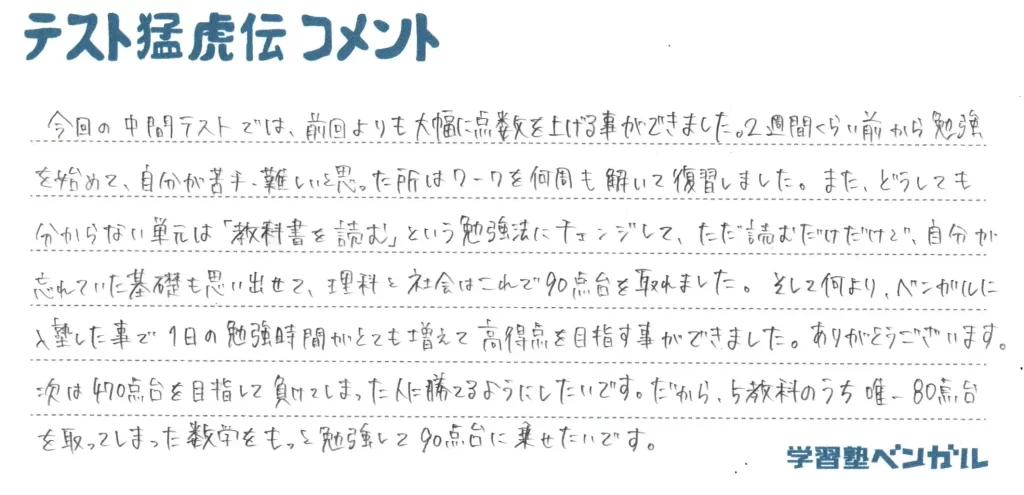 テスト猛虎伝 コメント
今回の中間テストでは、前回よりも大幅に点数を上げる事ができました。2週間くらい前から勉強
を始めて、自分が苦手、難しいと思った所はワークを何周も解いて復習しました。また、どうしても
分からない単元は「教科書を読む」という勉強法にチェンジして、ただ読むだけだけど、自分が
忘れていた基礎も思い出せて、理科と社会はこれで90点台を取れました。そして何より、ベンガルに
入塾した事で1日の勉強時間がとても増えて高得点を目指す事ができました。ありがとうございます。
次は470点台を目指して負けてしまった人に勝てるようにしたいです。だから、5教科のうち唯一80点台
を取ってしまった数学をもっと勉強して90点台に乗せたいです。
学習塾ベンガル